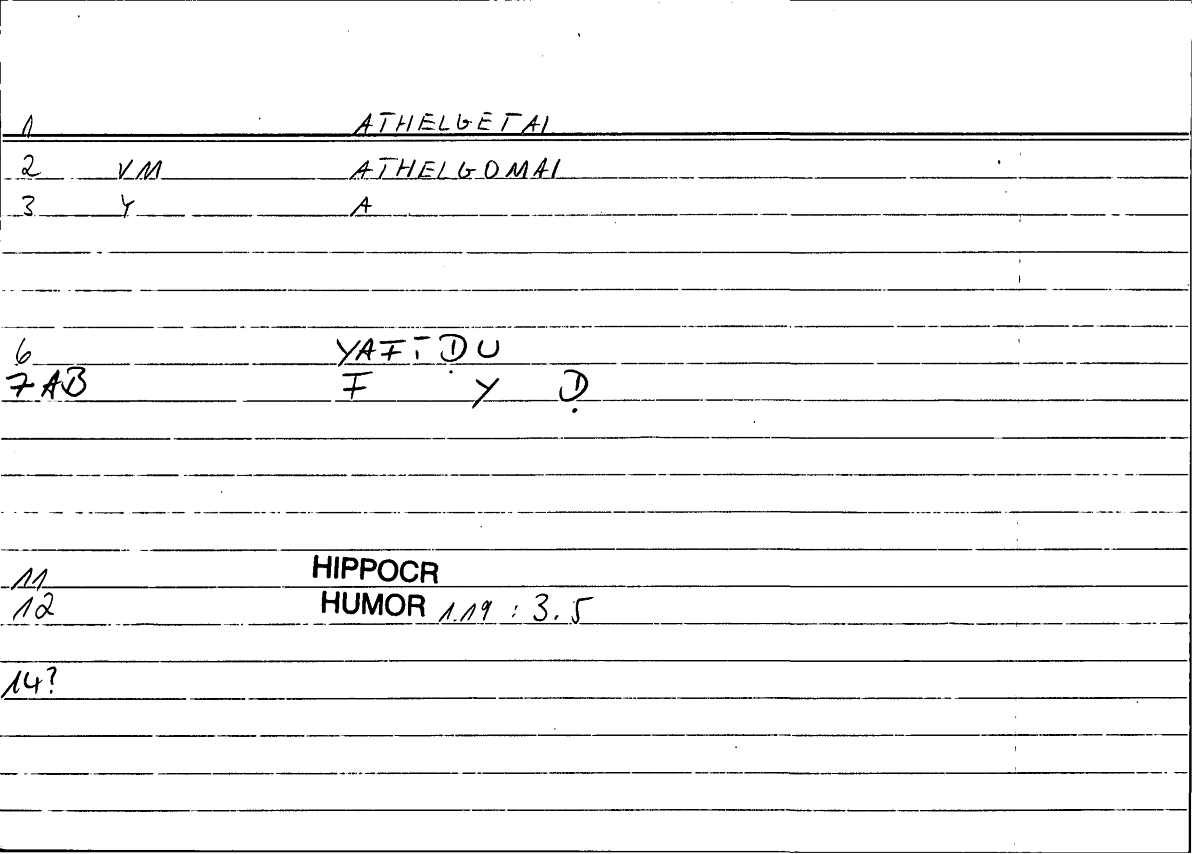 1 ATHELGETAI
2 VM ATHELGOMAI
3 Y A
6 YAFTḌU
7AB F Y Ḍ
11 HIPPOCR
12 HUMOR 1.19 : 3.5
14?